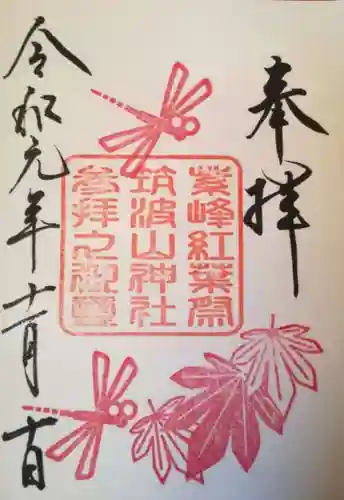 奉拝
紫峰紅葉祭
筑波山神社
参拝之御璽
令和元年十一月十日